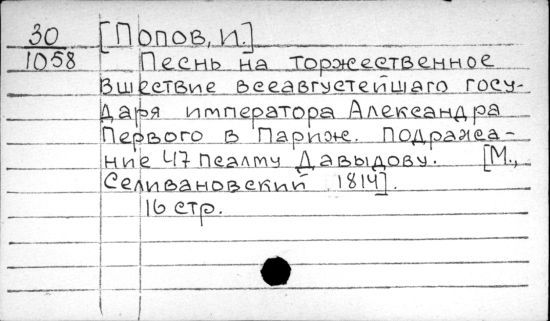 30 [Попов, И.]
1058 Песнь на торжественное
вшествие всеавгустейшаго госу-
даря императора Александра
Первого в Париж. Подража-
ние 47 псалму Давыдову. [М.,
Селивановский 1814].
16 стр.